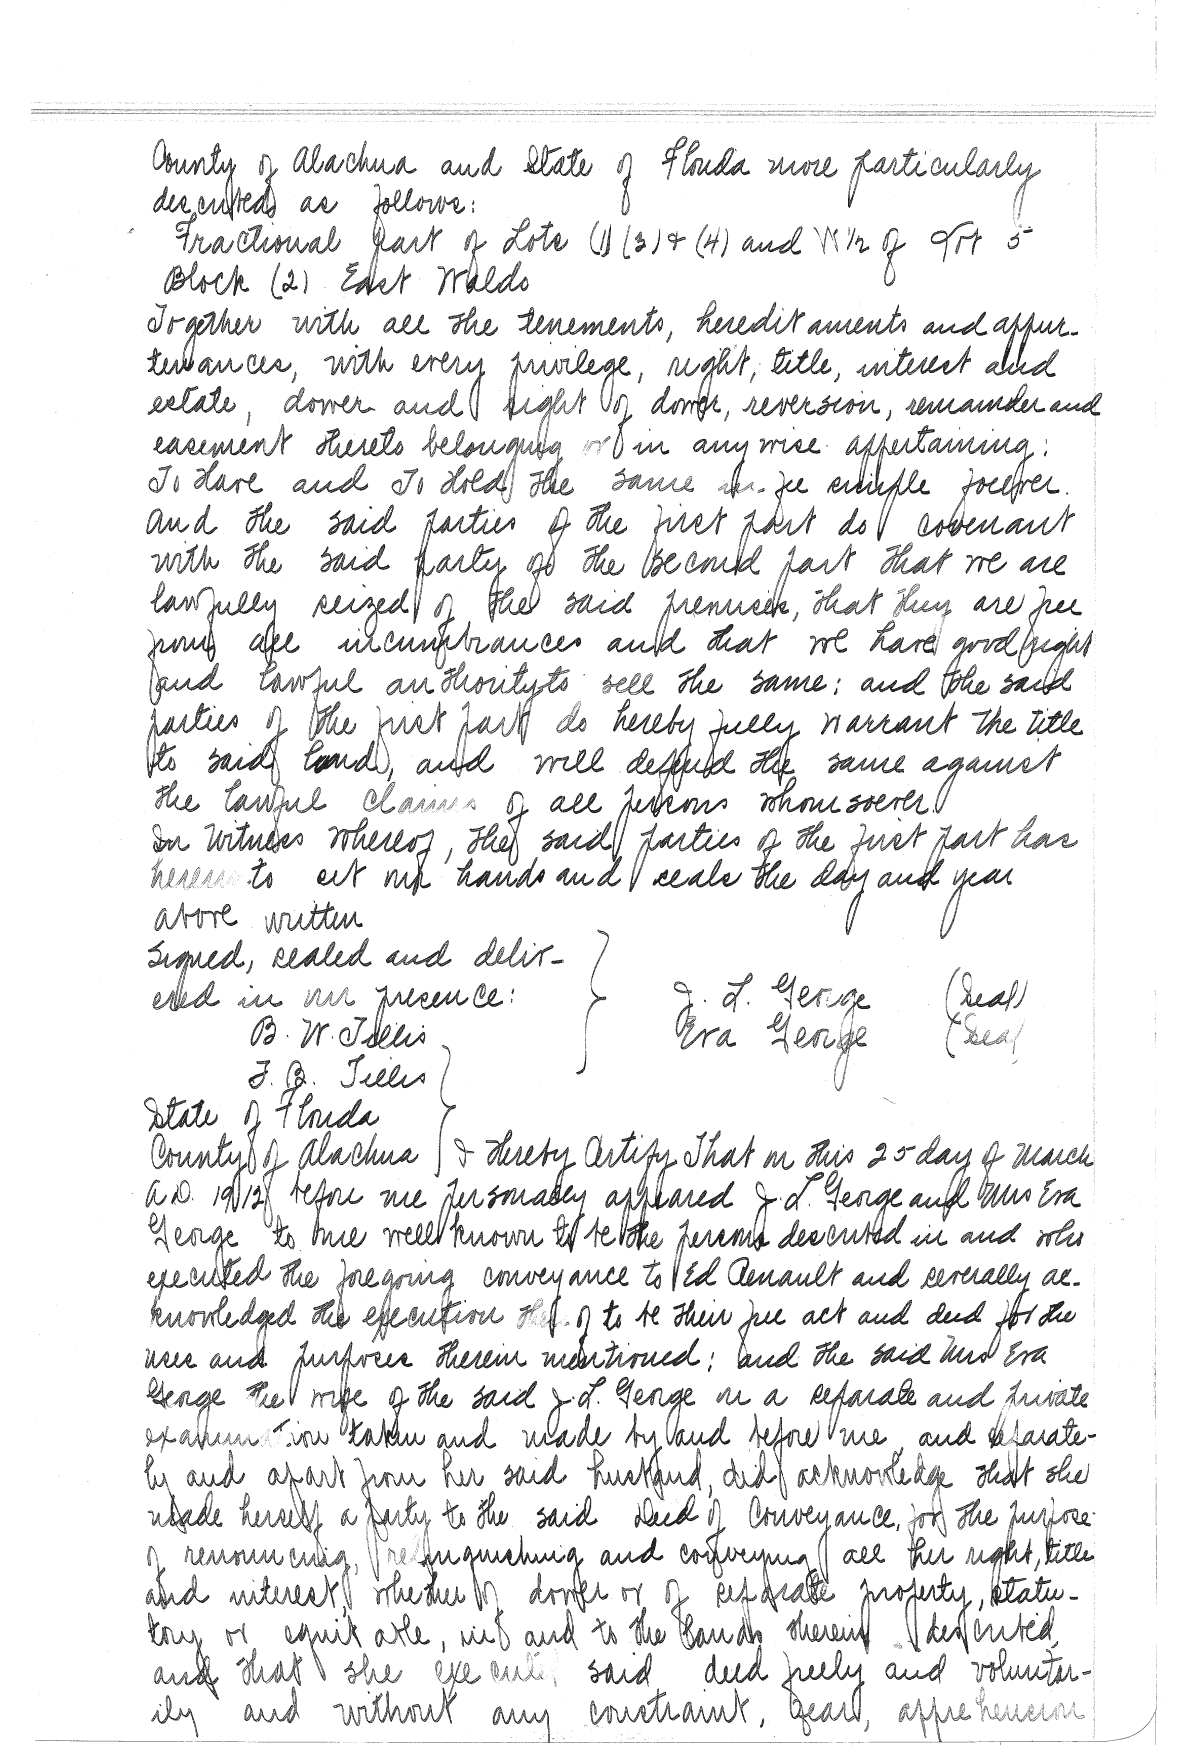 County of Alachua and State of Florida more particularly
described as follows:
Fractional part of Lots (1) (3) & (4) and W 1/2 of Lot 5
Block (2) East Waldo
Together with all the tenements, hereditaments and appur-
tenances, with every privilege, right, title, interest and
estate, dower and right of dower, reversion, remainder and
easement thereto belonging or in anywise appertaining:
To Have and To Hold the same in fee simple forever.
And the said parties of the first part do covenant
with the said party of the second part that we are
lawfully seized of the said premises, that they are free
from all incumbrances and that we have good right
and lawful authority to sell the same; and the said
parties of the first part do hereby fully warrant the title
to said land, and will defend the same against
the lawful claims of all persons whomsoever.
In Witness Whereof, the said parties of the first part has
hereunto set our hands and seals the day and year
above written
Signed, sealed and deliv-
ered in our presence:
J. L. George (Seal)
B. W. Tillis
Eva George (Seal
F. B. Tillis
State of Florida
County of Alachua } I Hereby Certify That on this 25 day of March
A.D. 1912 before me personally appeared J. L. George and Mrs Eva
George to me well known to be the persons described in and who
executed the foregoing conveyance to Ed Renault and severally ac-
knowledged the execution thereof to be their free act and deed for the
uses and purposes therein mentioned; and the said Mrs Eva
George the wife of the said J. L. George on a separate and private
examination taken and made by and before me, and separate-
ly and apart from her said husband, did acknowledge that she
made herself a party to the said Deed of Conveyance, for the purpose
of renouncing, relinquishing and conveying all her right, title
and interest, whether of dower or of separate property, statu-
tory or equitable, in and to the lands therein described,
and that she executed said deed freely and voluntar-
ily and without any constraint, fear, apprehension